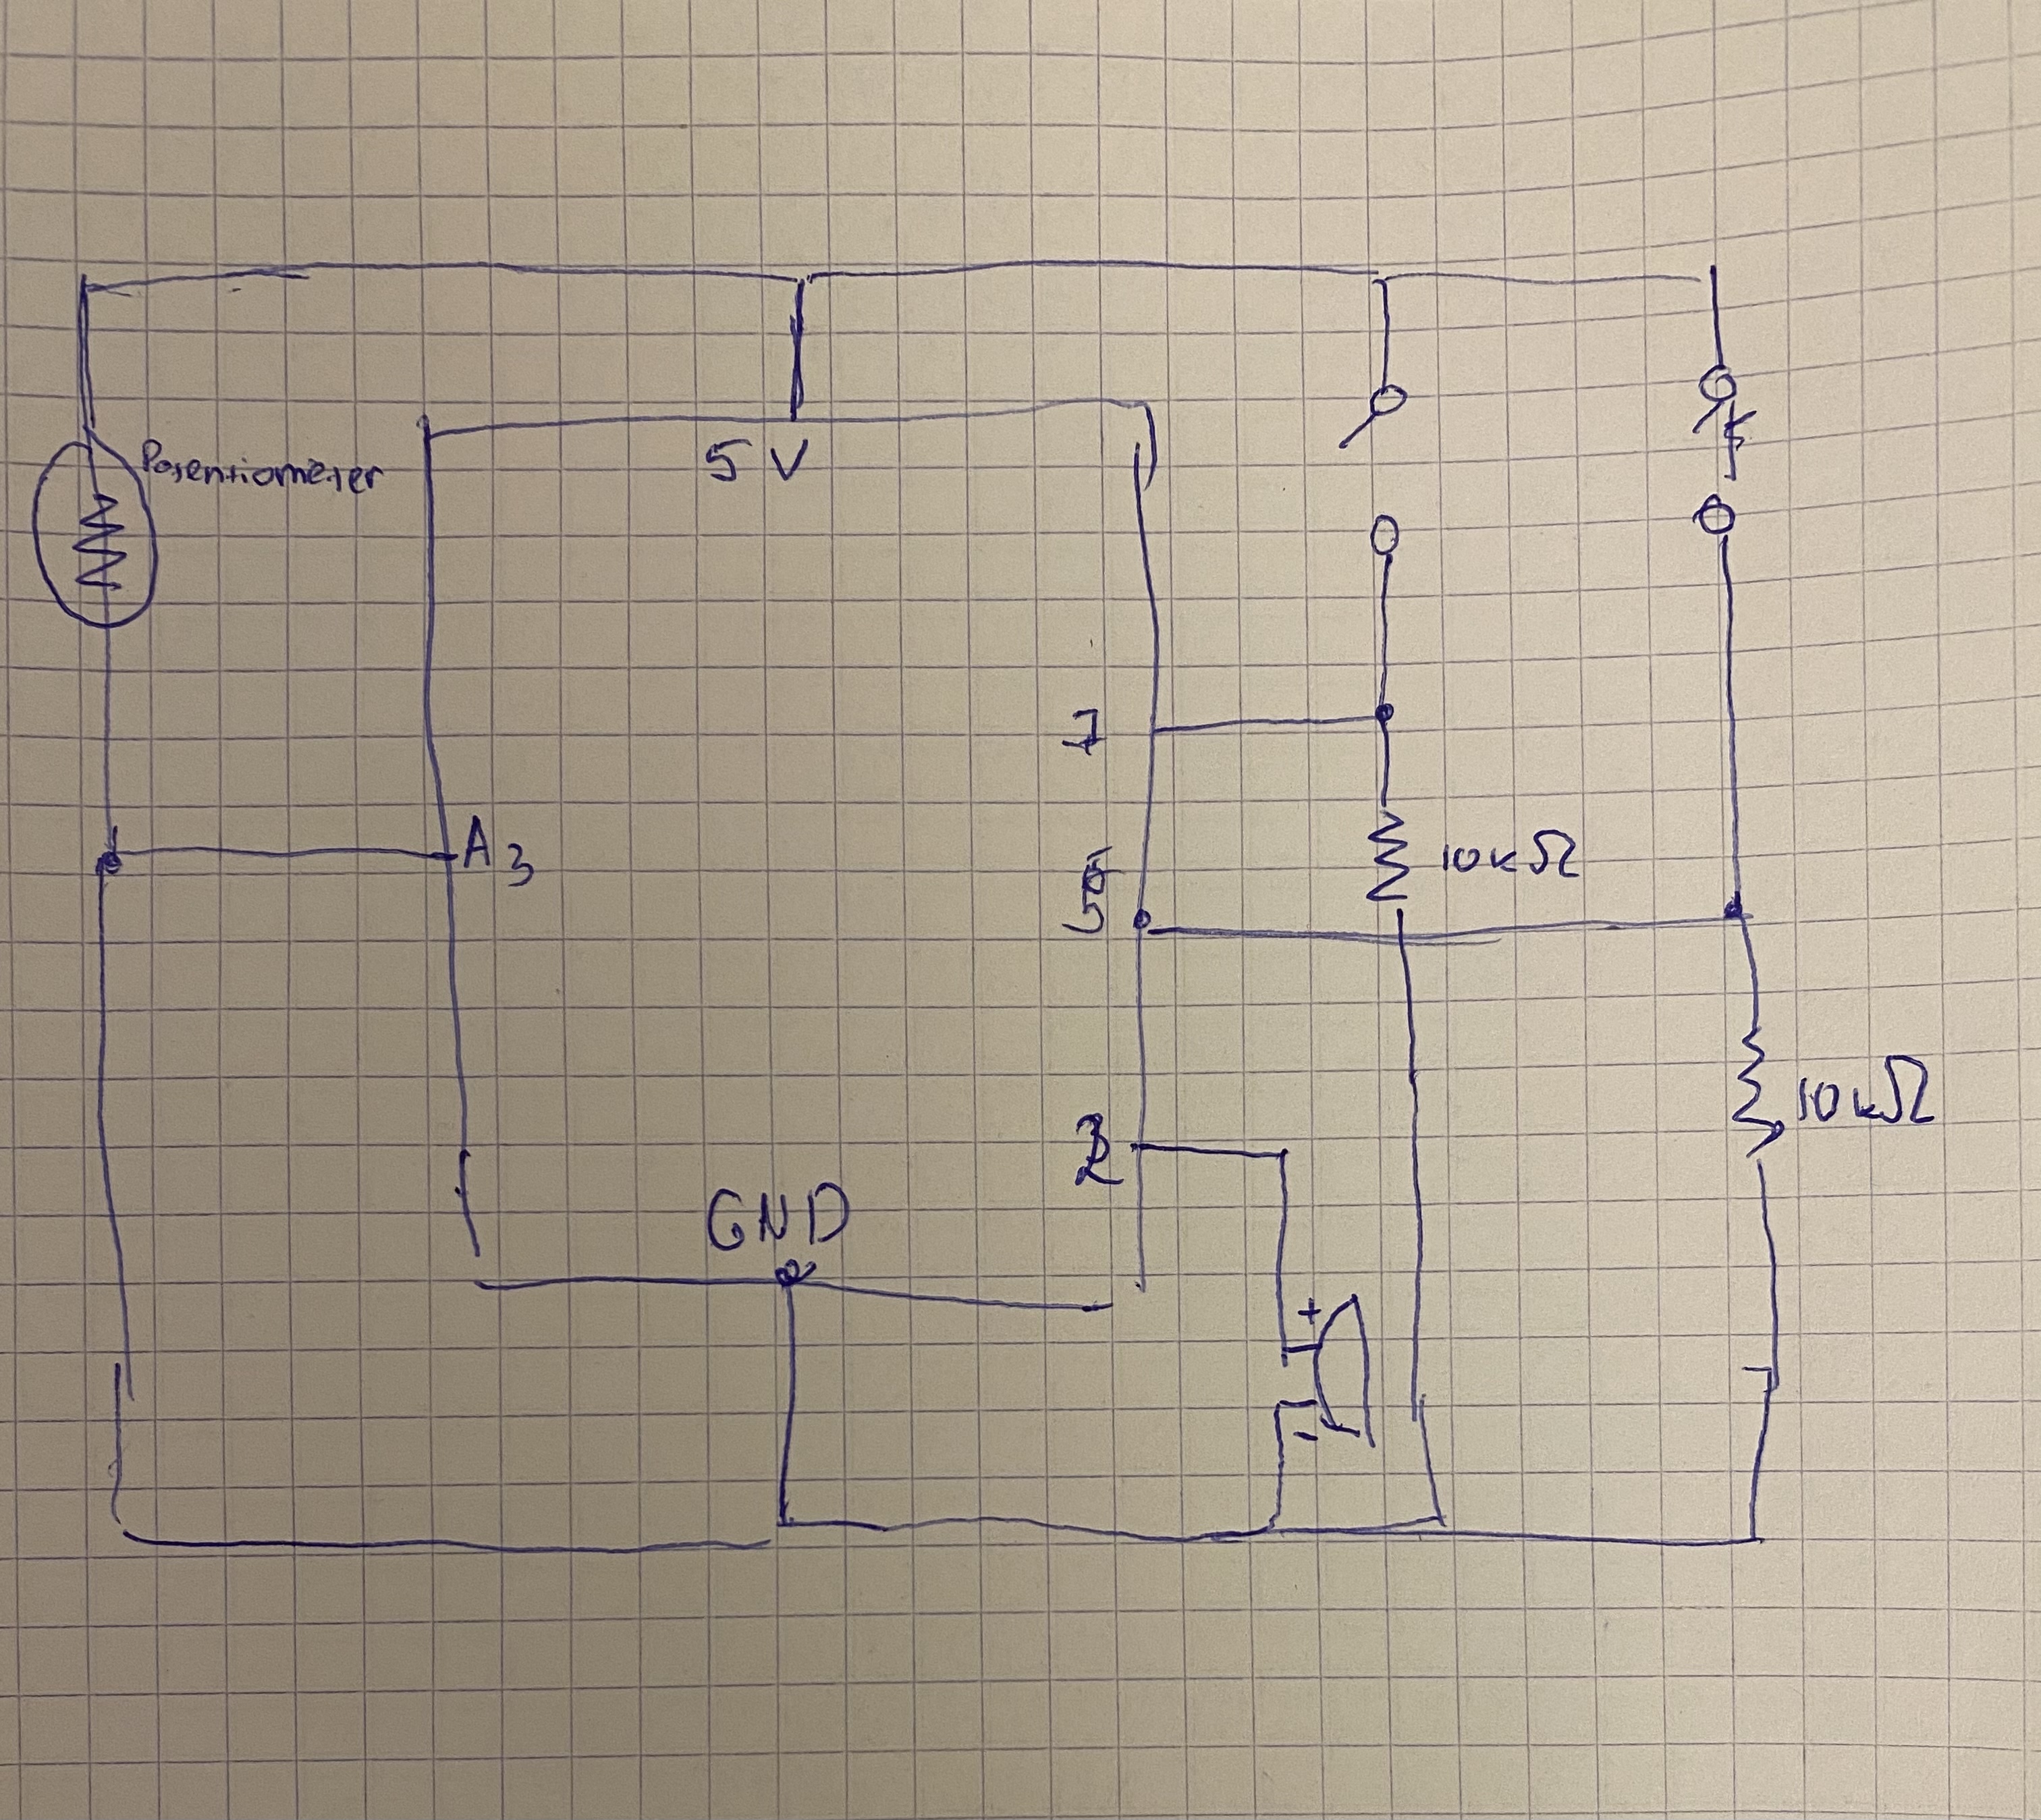 Potentiometer
5V
7
A3
10kΩ
5
10kΩ
2
GND
+
-